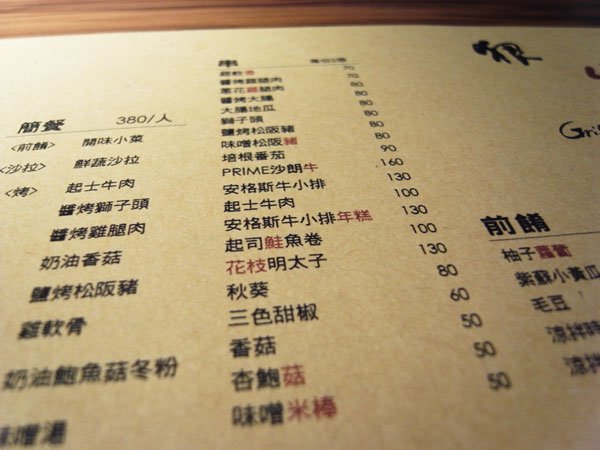 簡餐 380/人
<前餚> 開味小菜
<沙拉> 鮮蔬沙拉
<烤> 起士牛肉
醬烤獅子頭
醬烤雞腿肉
奶油香菇
鹽烤松阪豬
雞軟骨
奶油鮑魚菇冬粉
味噌湯
串
雞軟骨 70
醬烤雞腿肉 70
蔥花雞腿肉 80
醬烤大腸 80
大腸地瓜 80
獅子頭 80
鹽烤松阪豬 80
味噌松阪豬 80
培根番茄 90
PRIME沙朗牛 160
安格斯牛小排 130
起士牛肉 100
安格斯牛小排年糕 130
起司鮭魚卷 100
花枝明太子 130
秋葵 80
三色甜椒 60
香菇 50
杏鮑菇 50
味噌米棒 50
Gril
前餚
柚子蘿蔔
紫蘇小黃瓜
毛豆
涼拌
涼拌